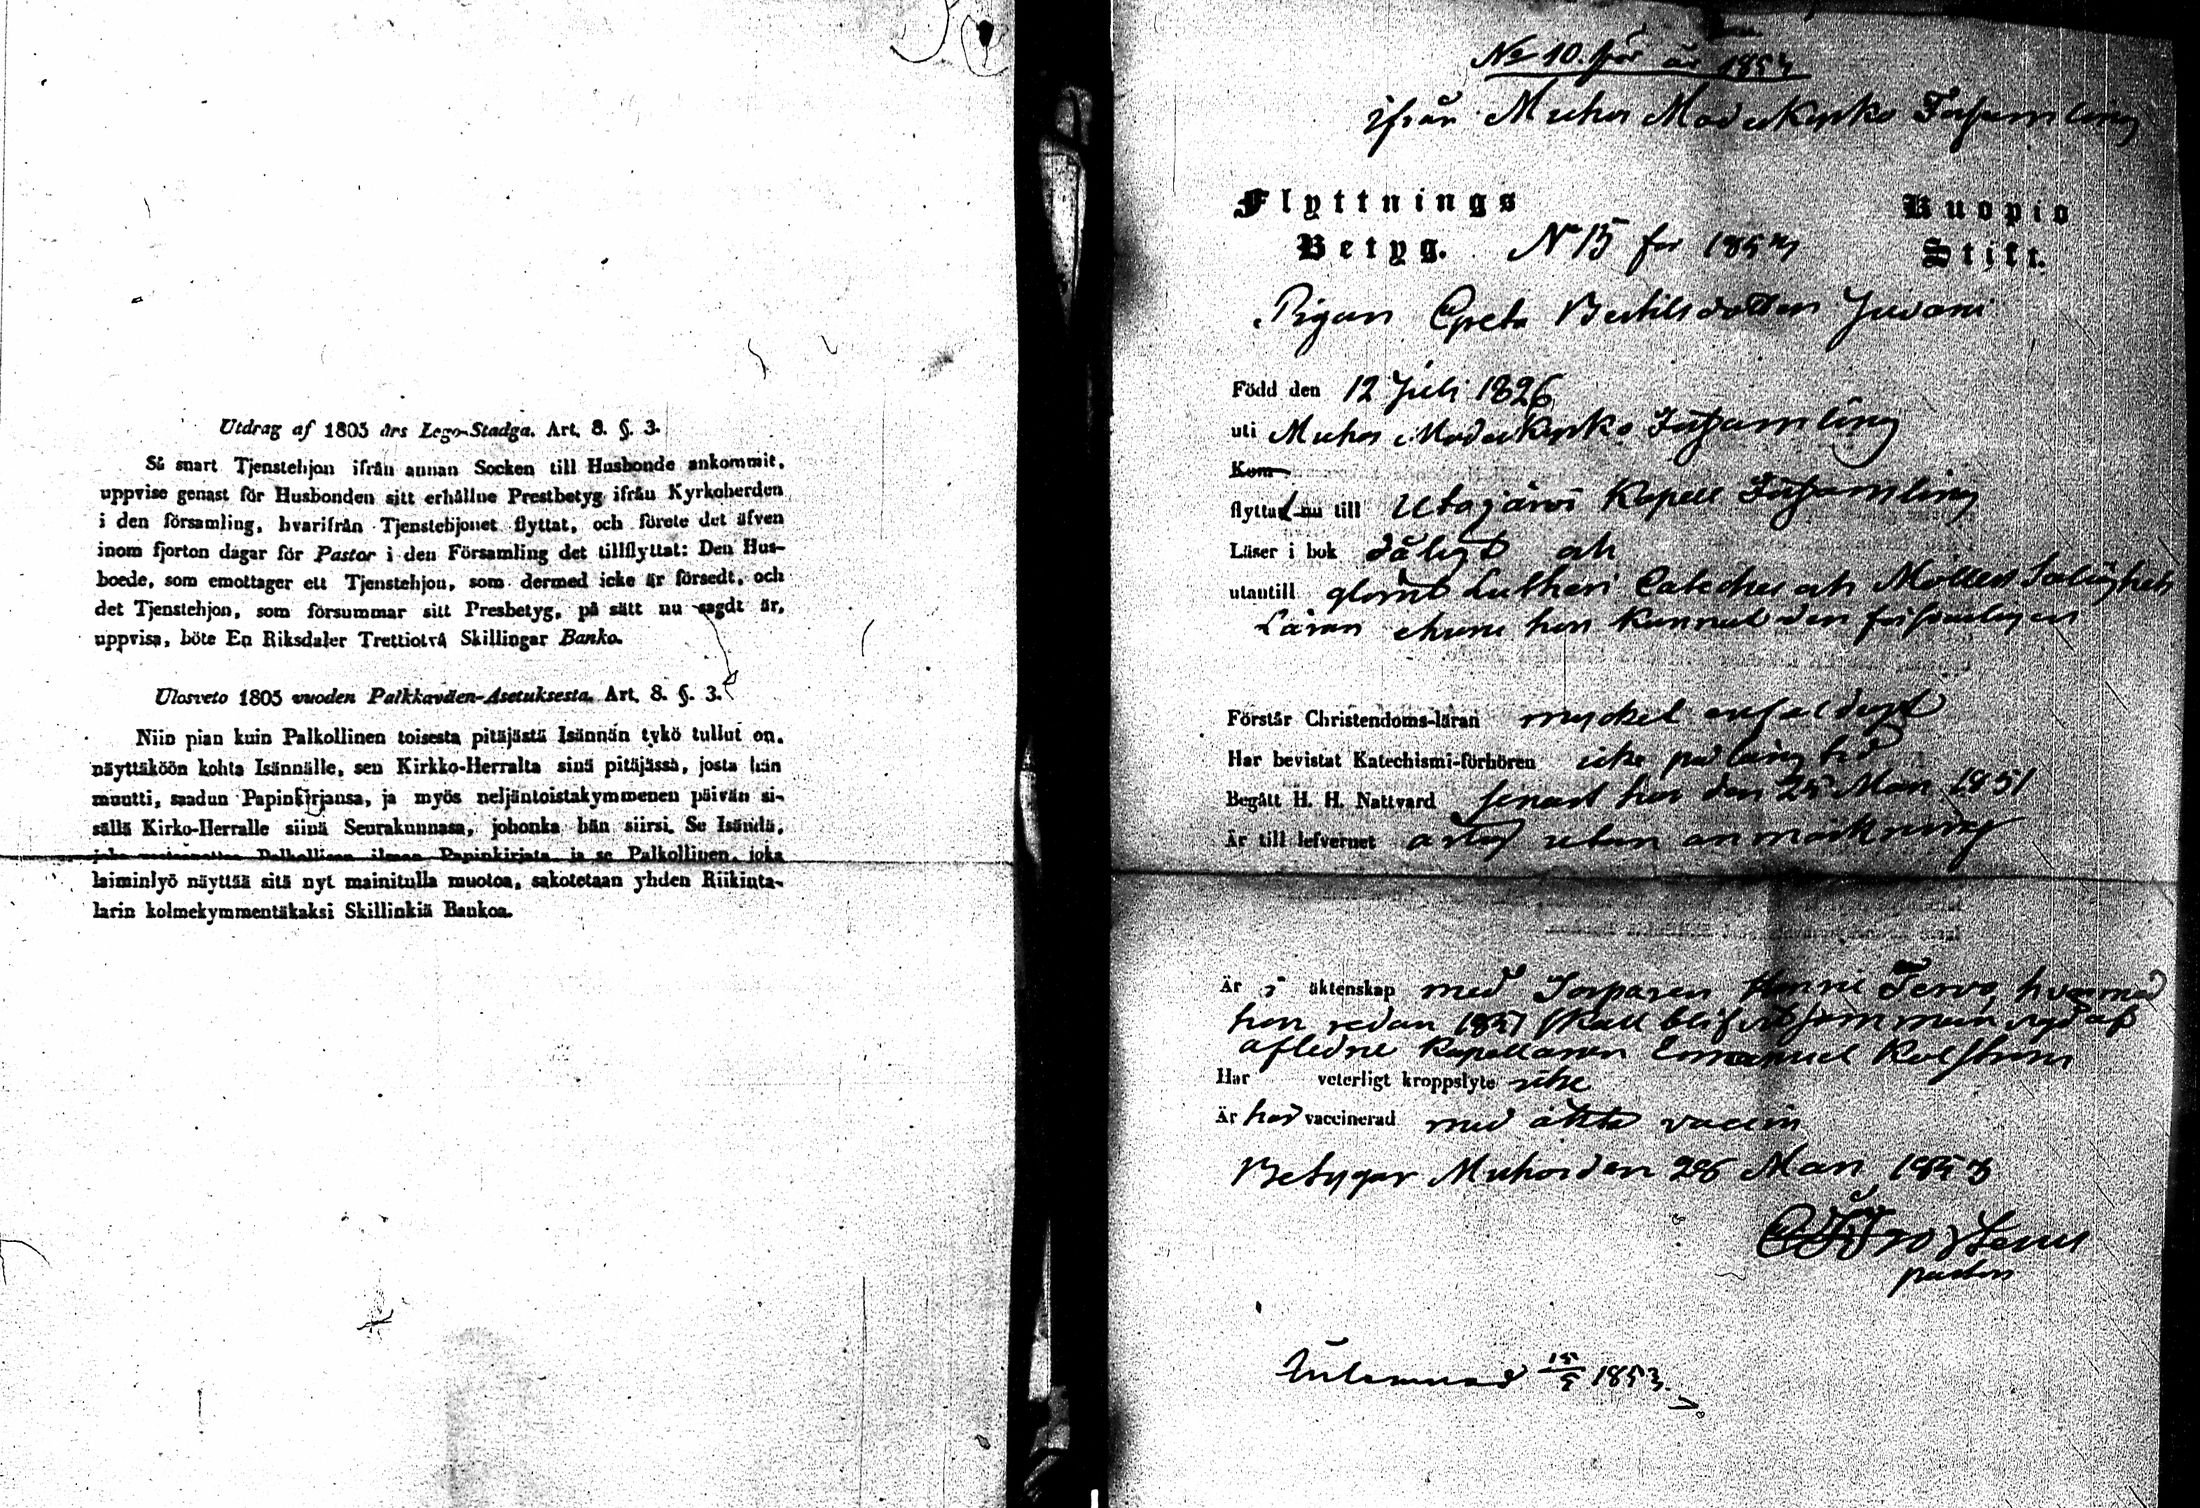 Utdrag af 1805 års Lego-Stadga. Art. 8. §. 3.
Så snart Tjenstehjon ifrån annan Socken till Husbonde ankommit,
uppvise genast för Husbonden sitt erhållne Prestbetyg ifrån Kyrkoherden
i den församling, hvarifrån Tjenstehjonet flyttat, och förete det äfven
inom fjorton dagar för Pastor i den Församling det tillflyttat: Den Hus-
boede, som emottager ett Tjenstehjon, som dermed icke är försedt, och
det Tjenstehjon, som försummar sitt Presbetyg, på sätt nu sagdt är,
uppvisa, böte En Riksdaler Trettiotvå Skillingar Banko.
Ulosveto 1805 vuoden Palkkaväen-Asetuksesta. Art. 8. §. 3.
Niin pian kuin Palkollinen toisesta pitäjästä Isännän tykö tullut on,
näyttäköön kohta Isännälle, sen Kirkko-Herralta sinä pitäjässä, josta hän
muutti, saadun Papinkirjansa, ja myös neljäntoistakymmenen päivän si-
sällä Kirko-Herralle siinä Seurakunnasa, johonka hän siirsi. Se Isändä,
joka vastaanottaa Palkollisen ilman Papinkirjata, ja se Palkollinen, joka
laiminlyö näyttää sitä nyt mainitulla muotoa, sakotetaan yhden Riikinta-
larin kolmekymmentäkaksi Skillinkiä Bankoa.
No 10. för år 1853
ifrån Muhos Moderkyrko Församling
Flyttnings Kuopio
Betyg. No 15 för 1853 Stift.
Pigan Greta Bertilsdotter Juvani
Född den 12 Juli 1826
uti Muhos Moderkyrko Församling
Kom
flyttat nu till Utajärvi Kapell Församling
Läser i bok dåligt och
utantill glömt Lutheri Cateches och Möllers Salighets
Läran ehuru hon kunnat den
Förstår Christendoms-läran mycket enfaldigt
Har bevistat Katechismi-förhören icke på lång tid
Begått H. H. Nattvard senast här den 25 Mars 1851
Är till lefvernet utan anmärkning
Är i äktenskap med Torparen Henric Tervo, hvarmed
hon redan 1851 skall blifvit sammanvigd af
afledne Kapellanen Emanuel
Har veterligt kroppslyte icke
Är hon vaccinerad med äkta vaccin
Betygar Muhos den 28 Mars 1853
pastor
Inlemnad 15/5 1853.